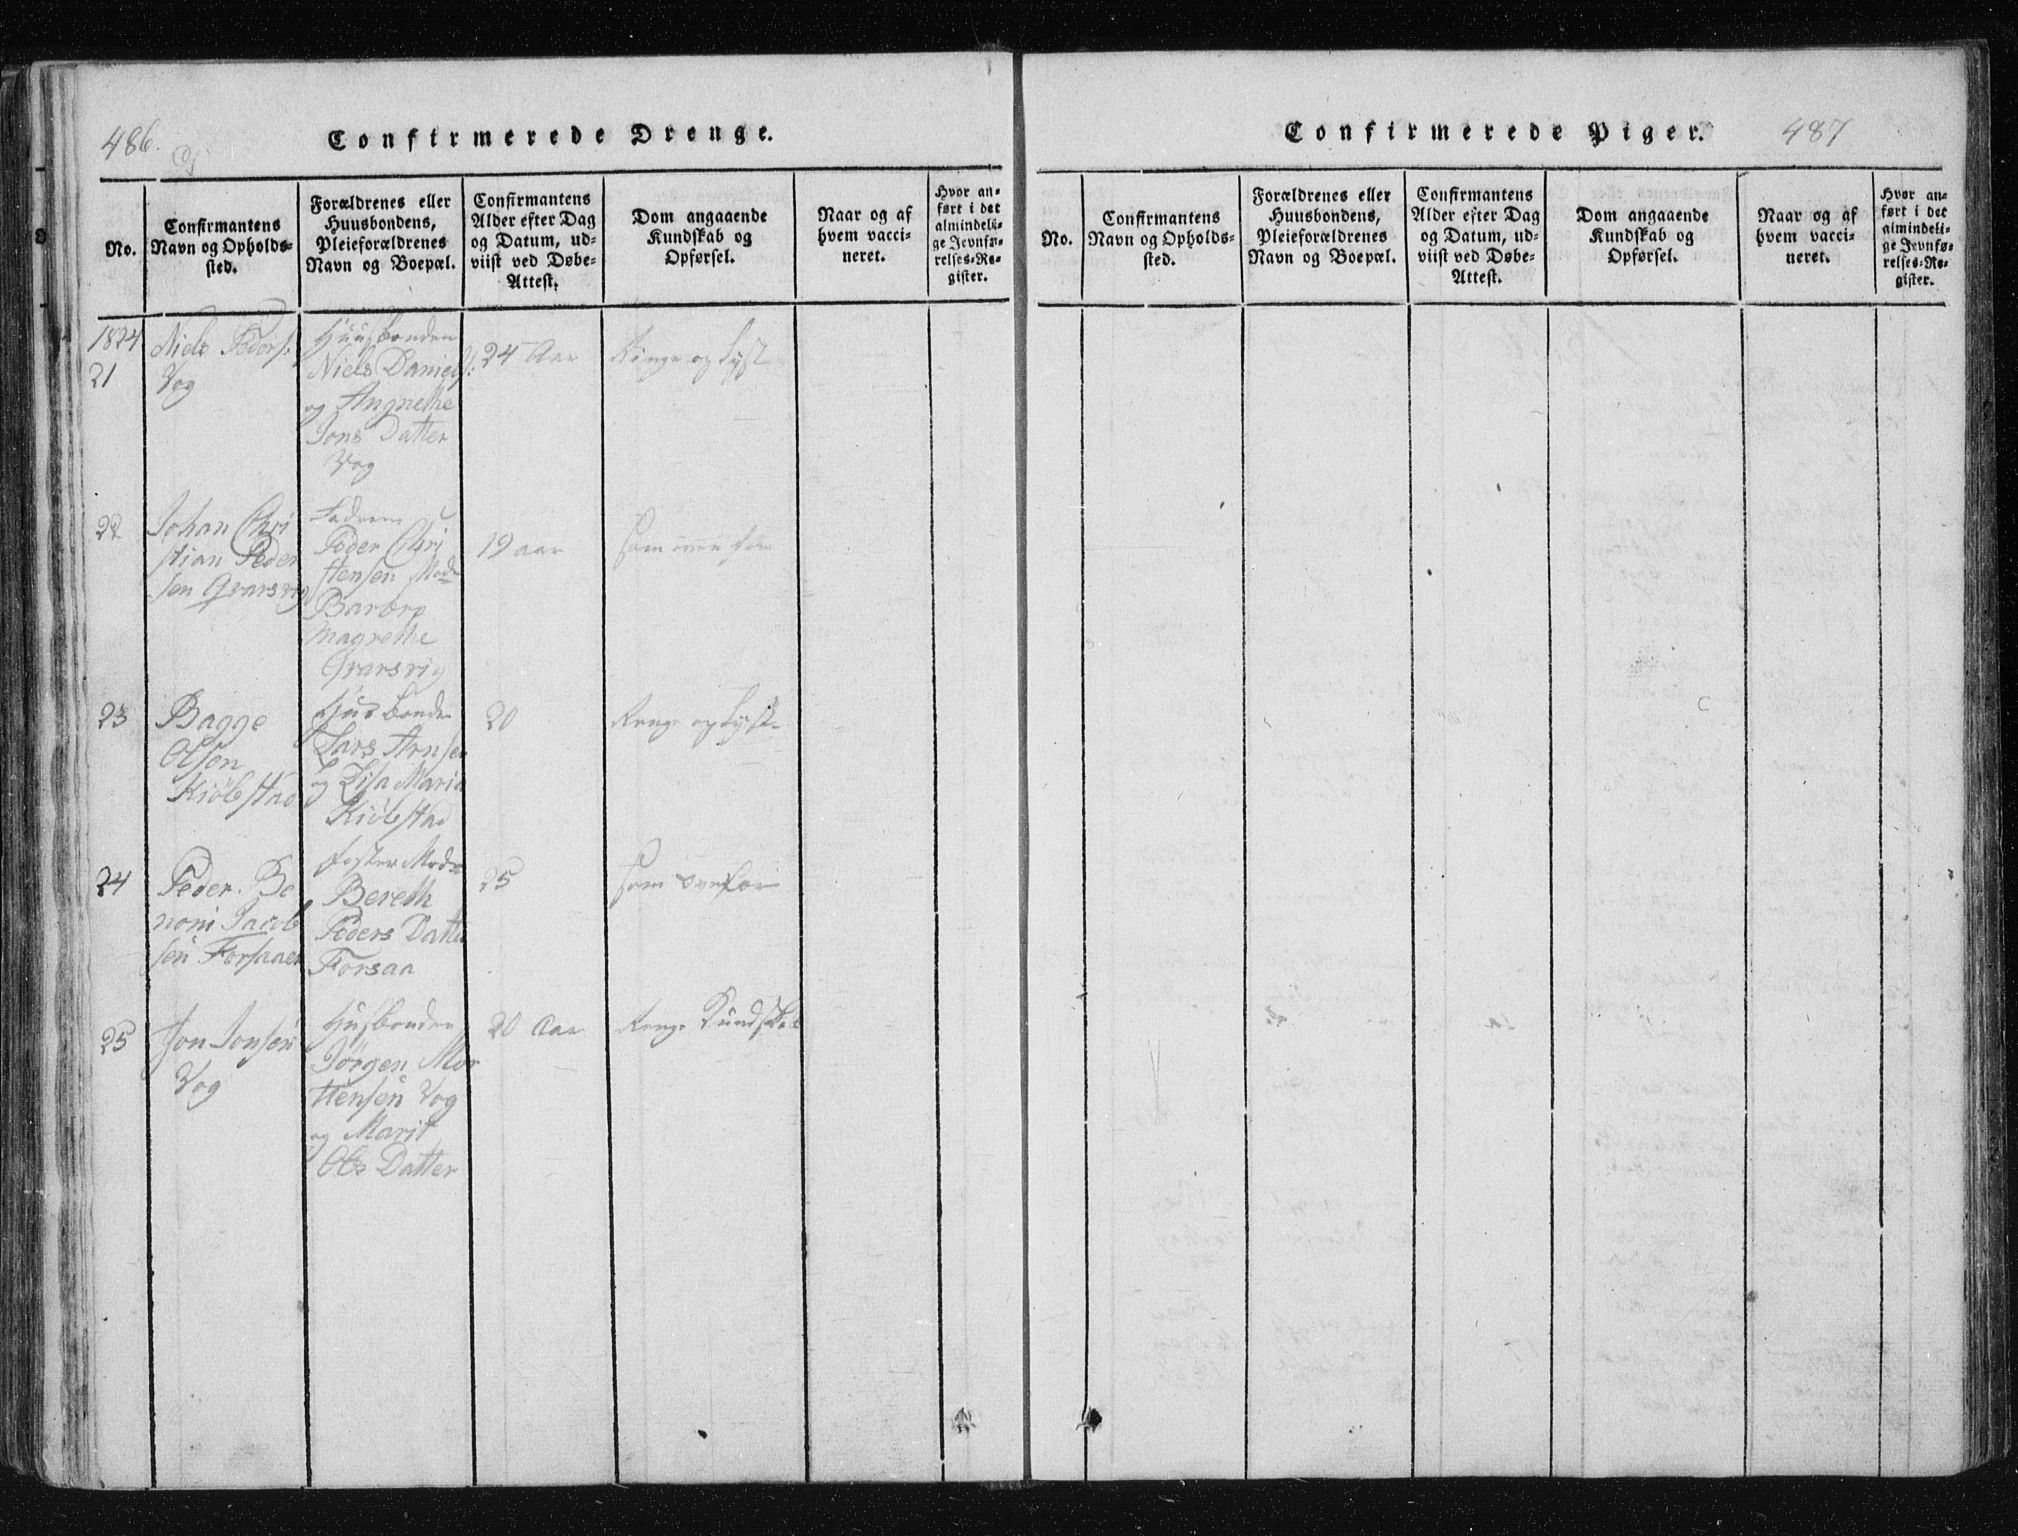 486.
Confirmerede Drenge.
No.
Confirmantens
Navn og Opholds-
sted.
Forældrenes eller
Huusbondens,
Pleieforældrenes
Navn og Boepæl.
Confirmantens
Alder efter Dag
og Datum, ud-
viist ved Døbe-
Attest.
Dom angaaende
Kundskab og
Opførsel.
Naar og af
hvem vacci-
neret.
Hvor an-
ført i det
almindeli-
ge Jevnfø-
relses-Re-
gister.
1824
21
Niels Peders:
Vog
Huusbonden
Niels Daniels:
og Angnethe
Jons Datter
Vog
24 Aar
Ringe oplyst
22
Johan Chri
stian Peder
sen Qvarsvig
Fadren
Peder Chri
stensen Mod
Barbro
Magrethe
Qvarsvig
19 aar
som ovenfor
23
Bagge
Olsen
Kiölstad
Husbonde
Lars Arnsen
og Lisa Maria
Kiölstad
20
Renge oplyst
24
Peder Be
noni Jacob
sen Forsaaen
foster Mod
Bereth
Peders Datter
Forsaa
25
som ovenfor
25
Jon Jonsen
Vog
Husbonden
Jörgen Mor
tensen Vog
og Marit
Ols Datter
20 Aar
Renge Kundskab
Confirmerede Piger.
487
No.
Confirmantens
Navn og Opholds-
sted.
Forældrenes eller
Huusbondens,
Pleieforældrenes
Navn og Boepæl.
Confirmantens
Alder efter Dag
og Datum, ud-
viist ved Døbe-
Attest.
Dom angaaende
Kundskab og
Opførsel.
Naar og af
hvem vacci-
neret.
Hvor an-
ført i det
almindeli-
ge Jevnfø-
relses-Re-
gister.